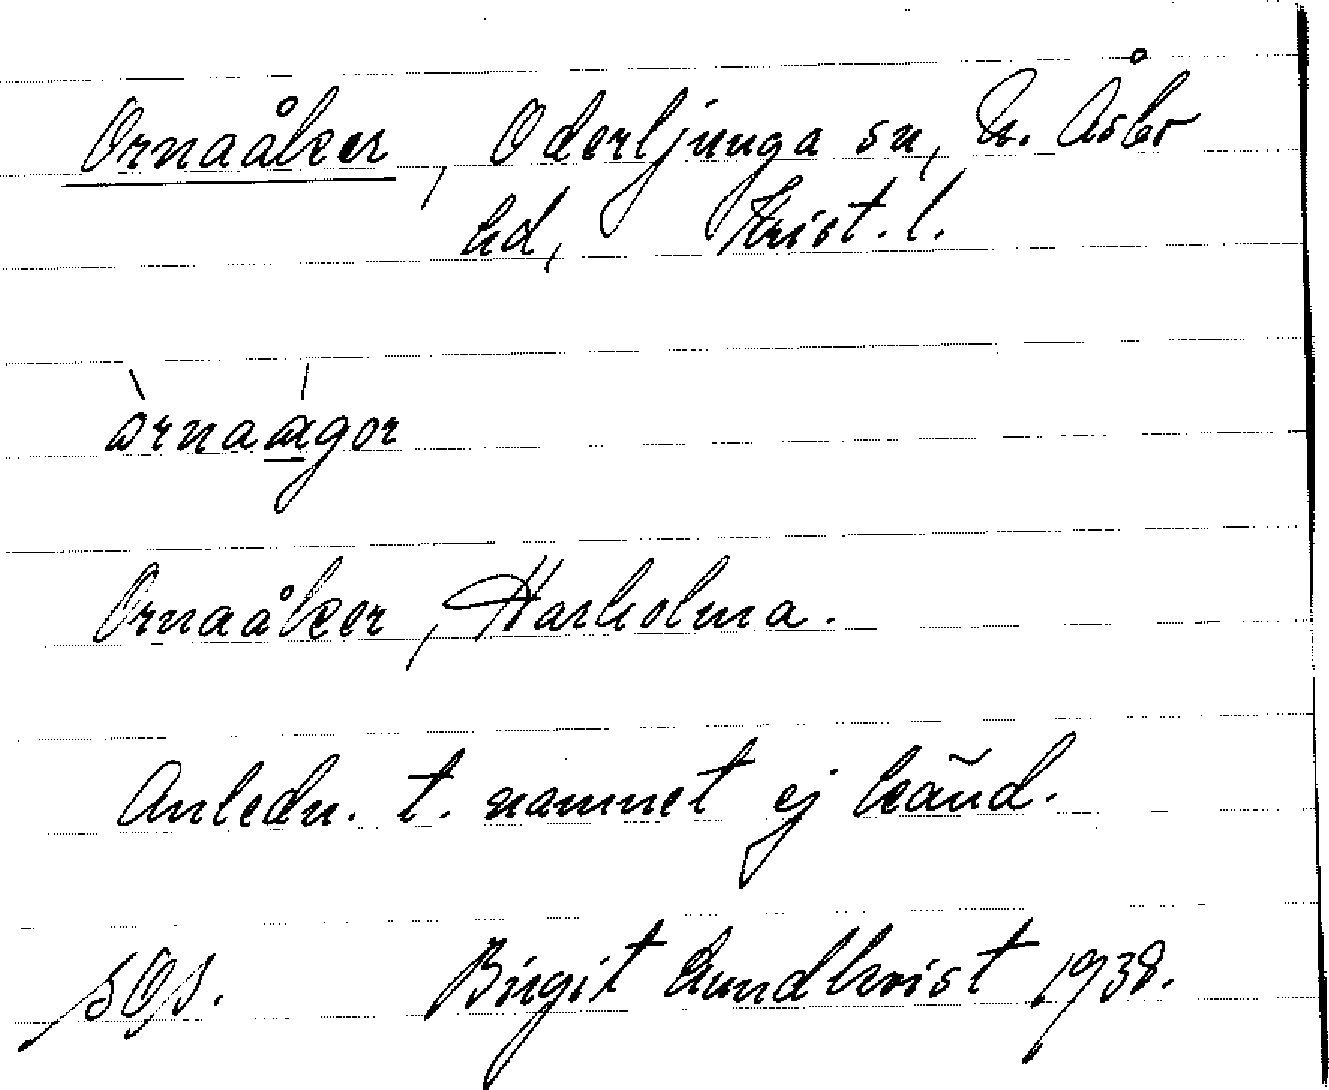 Ornaåker, Oderljunga sn, N. Åsbo
hd, Krist. l.
Ornaåker, Harholma.
Anledn. t. namnet ej känd.
SOS. Birgit Lundkvist 1938.